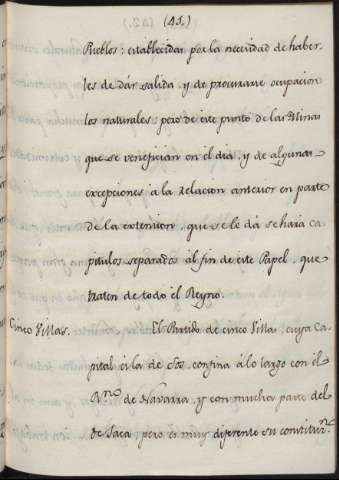 (45.)
Pueblos; establecidas por la necesidad de haber-
les de dár salida, y de procurarse ocupacion
los naturales; pero de este punto de las Minas
que se venefician en el dia, y de algunas
excepciones á la relacion anterior en parte
de la extension, que se le dá se hará ca-
pitulos separados al fin de este Papel, que
traten de todo el Reyno.
Cinco Villas. El Partido de cinco Villas, cuya Ca-
pital es la de Sos, confina á lo largo con el
R.no de Navarra, y con mucha parte del
de Jaca; pero es muy diferente su constitur.n